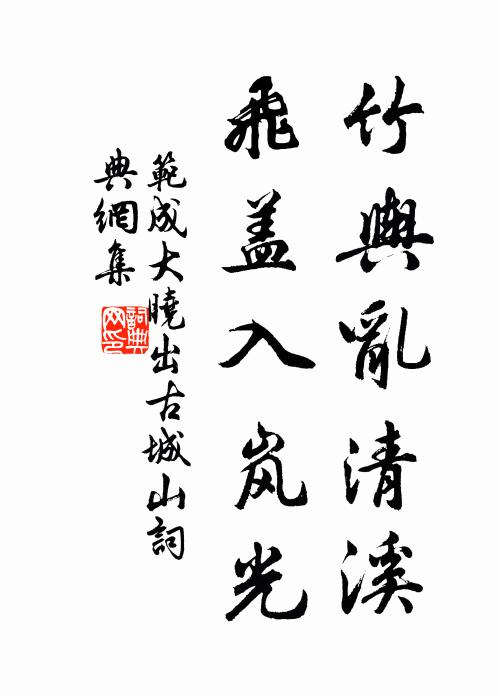 竹輿亂清溪
飛蓋入岚光
範成大曉出古城山詞
典網集
詞典
网印